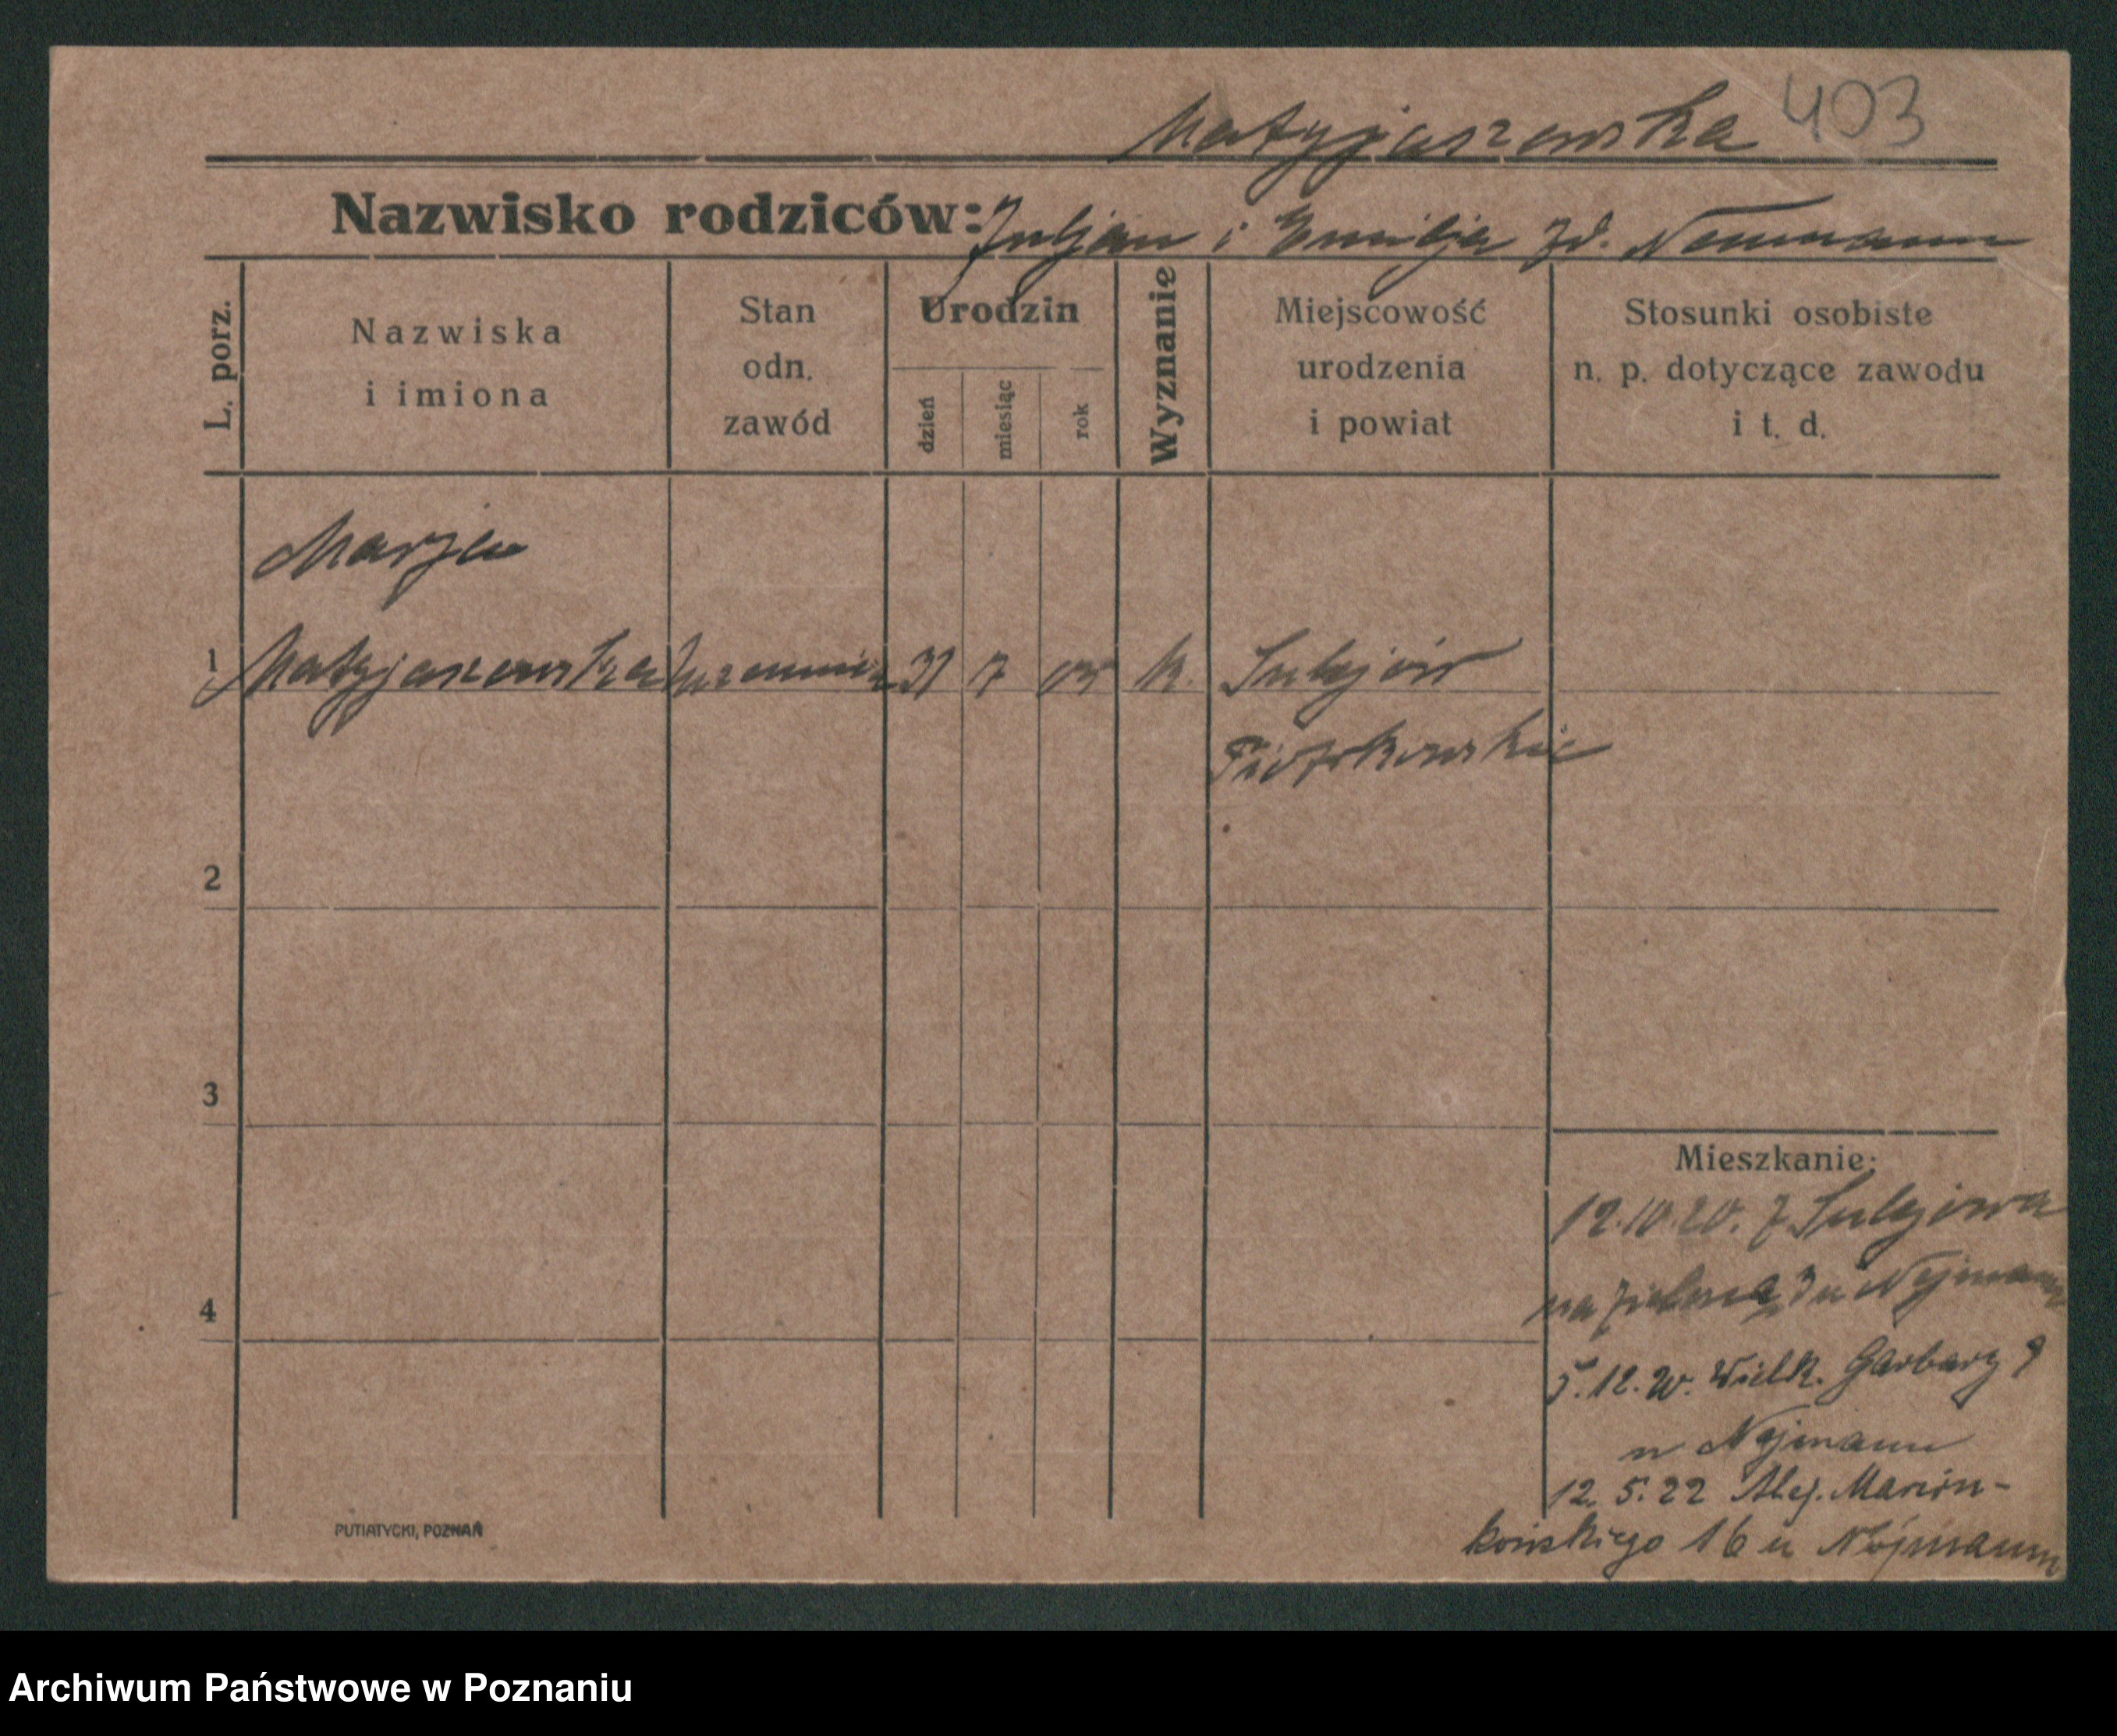 Matyjaszewska 403
Nazwisko rodziców: Juljan i Emilja zd. Neumann
L. porz.
Nazwiska
i imiona
Stan
odn.
zawód
Urodzin
dzień
miesiąc
rok
Wyznanie
Miejscowość
urodzenia
i powiat
Stosunki osobiste
n. p. dotyczące zawodu
i t. d.
Marja
1 Matyjaszewska uczennica 31 7 05 k. Sulejów
Piotrkowskie
2
3
4
Mieszkanie:
12.10.20. z Sulejowa
na Zielona 3 u Nejmann
5.12.20. Wielk. Garbary 9
u Nejmann
12. 5. 22 Alej. Marcin-
kowskiego 16 u Nejmann
PUTIATYCKI, POZNAŃ
Archiwum Państwowe w Poznaniu